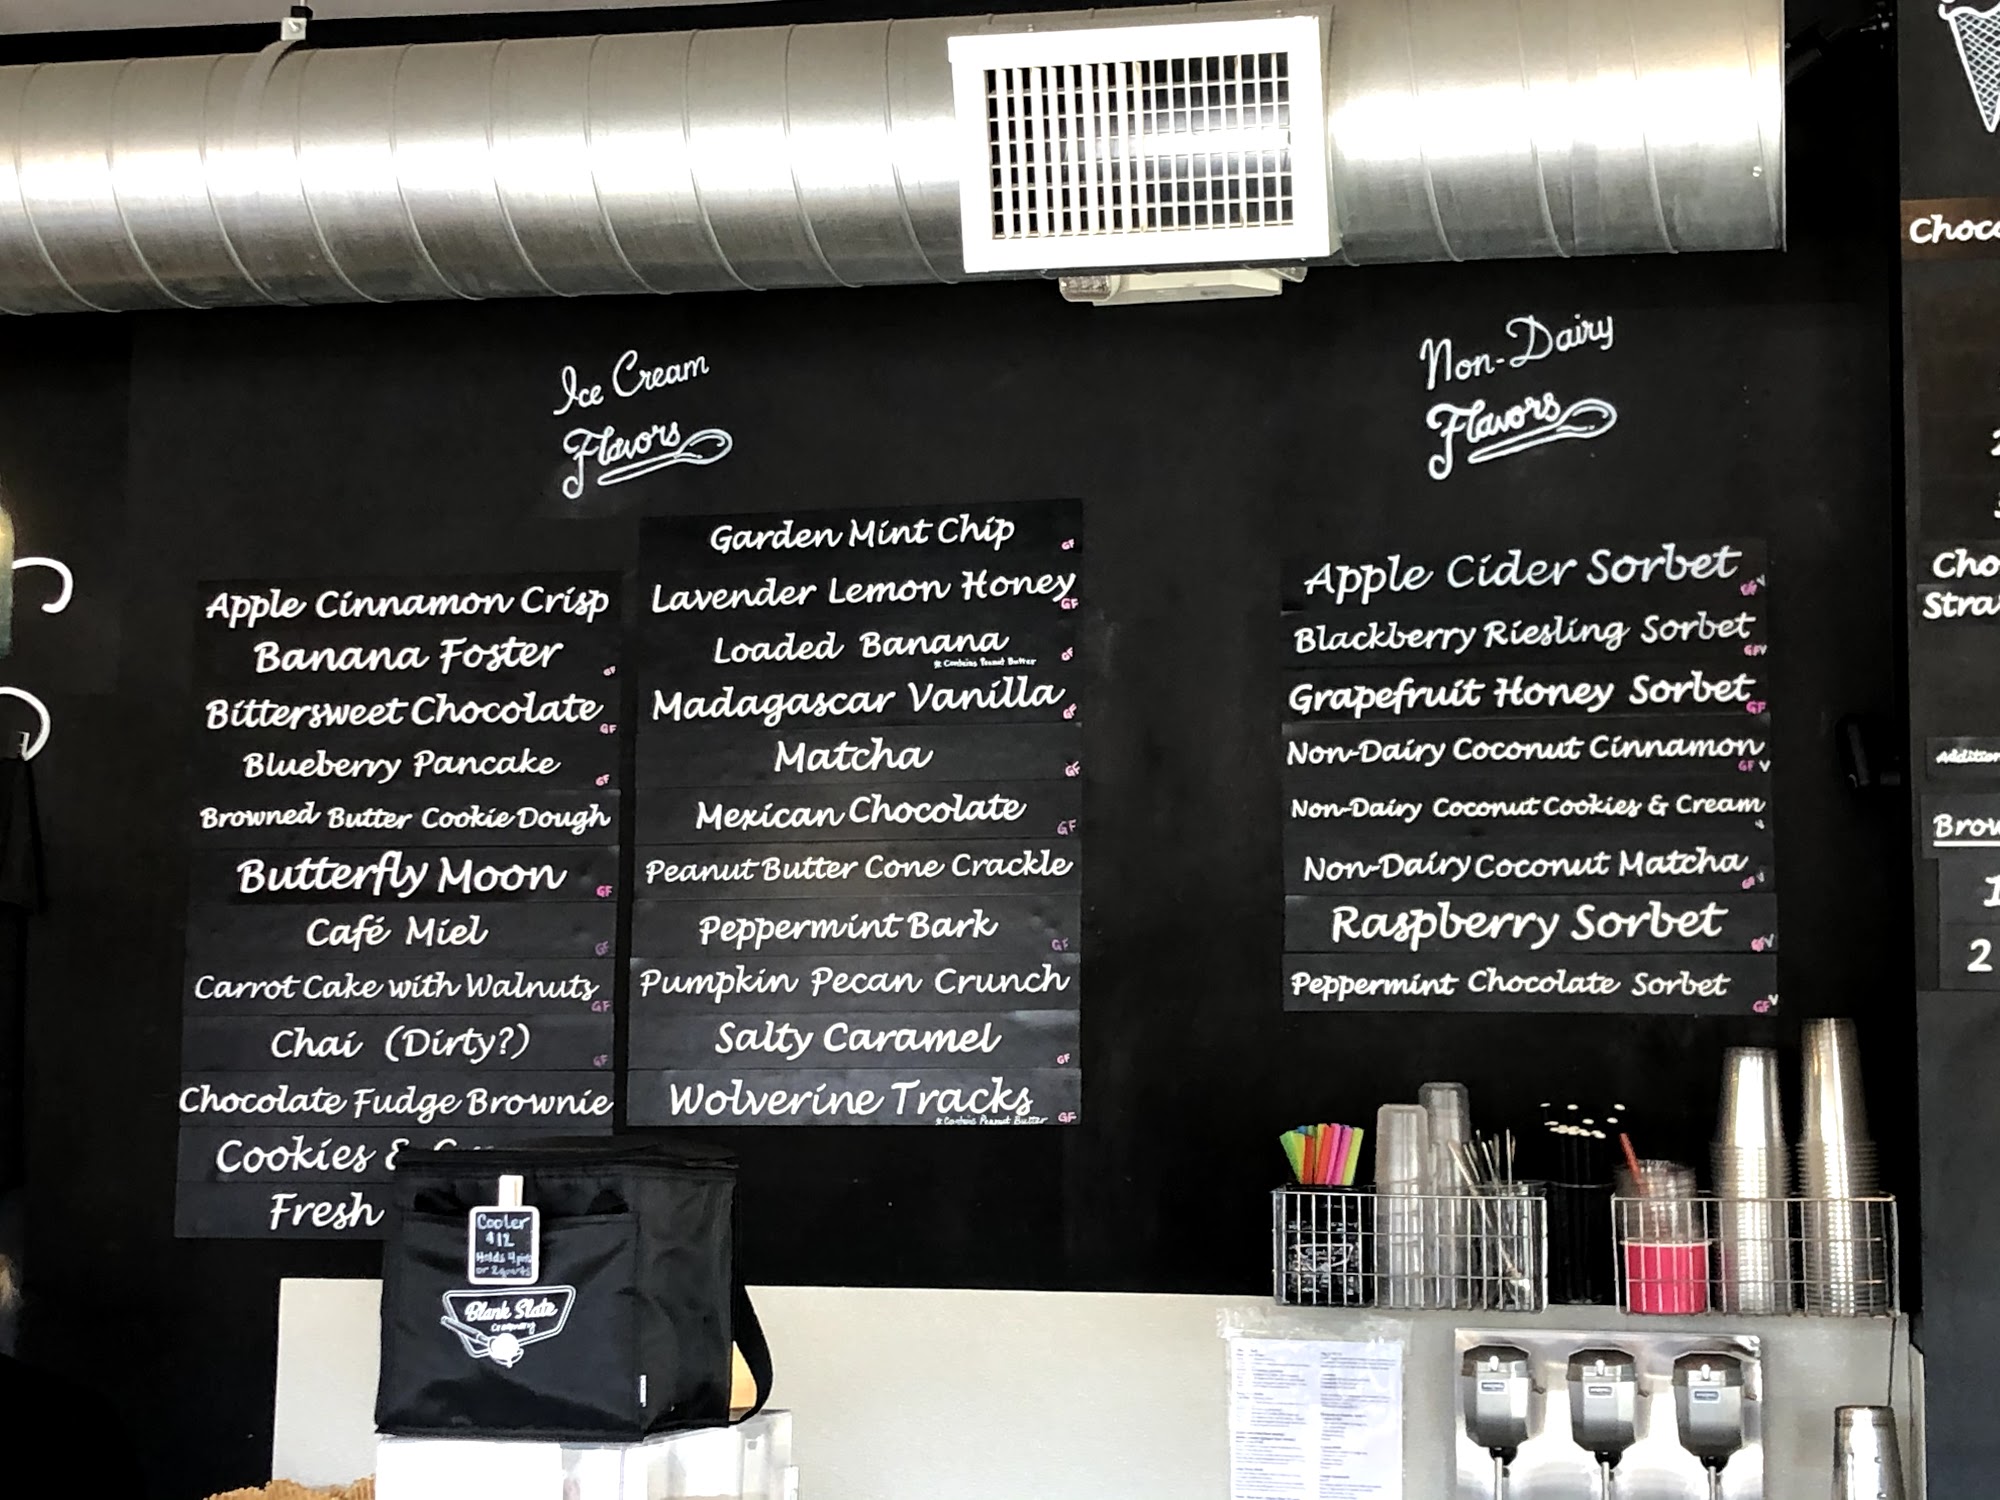 Ice Cream
Flavors
Apple Cinnamon Crisp
Banana Foster GF
Bittersweet Chocolate GF
Blueberry Pancake GF
Browned Butter Cookie Dough
Butterfly Moon GF
Café Miel GF
Carrot Cake with Walnuts GF
Chai (Dirty?) GF
Chocolate Fudge Brownie
Cookies &
Fresh
Garden Mint Chip GF
Lavender Lemon Honey GF
Loaded Banana GF
* Contains Peanut Butter
Madagascar Vanilla GF
Matcha GF
Mexican Chocolate GF
Peanut Butter Cone Crackle
Peppermint Bark GF
Pumpkin Pecan Crunch
Salty Caramel GF
Wolverine Tracks GF
* Contains Peanut Butter
Non-Dairy
Flavors
Apple Cider Sorbet GF V
Blackberry Riesling Sorbet GF V
Grapefruit Honey Sorbet GF
Non-Dairy Coconut Cinnamon GF V
Non-Dairy Coconut Cookies & Cream V
Non-Dairy Coconut Matcha GF V
Raspberry Sorbet GF V
Peppermint Chocolate Sorbet GF V
Choc
Cho
Stra
Addition
Brow
1
2
Cooler
$12
Holds 4 pints
or 2 quarts
Blank Slate
Creamery